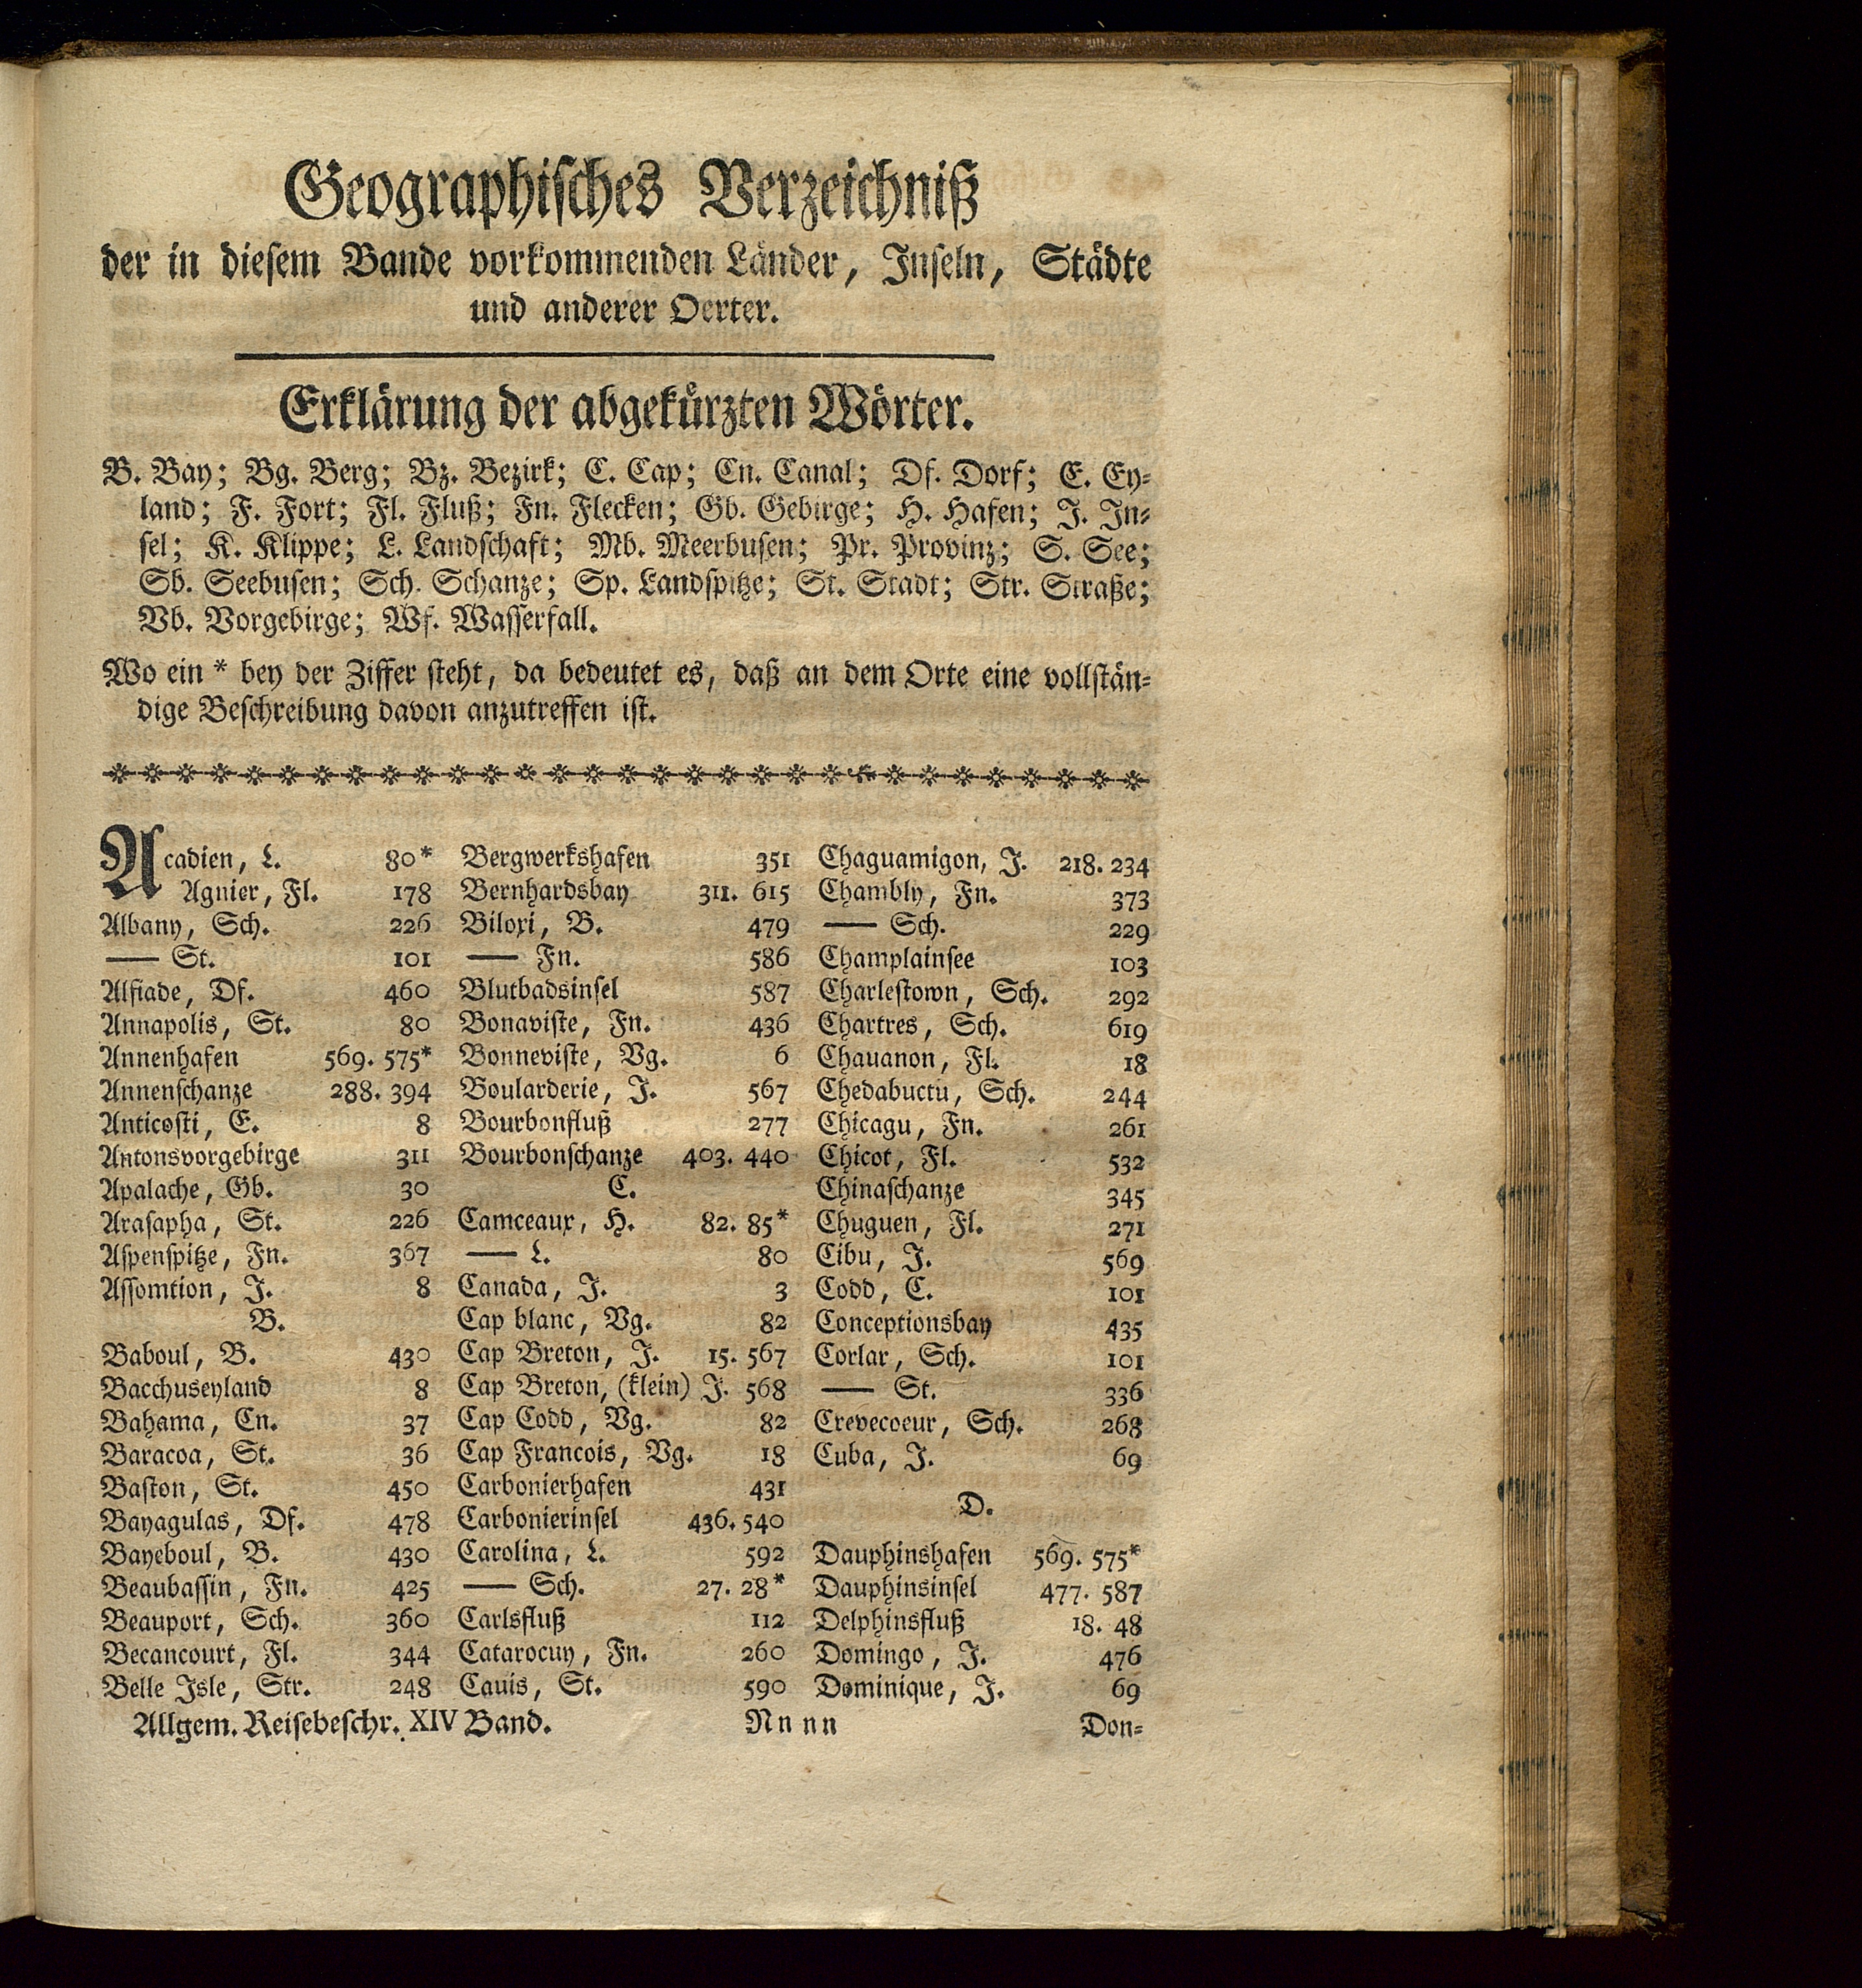 Geographisches Verzeichniß
der in diesem Bande vorkommenden Länder, Inseln, Städte
und anderer Oerter.
Erklärung der abgekürzten Wörter.
B. Bay; Bg. Berg; Bz. Bezirk; C. Cap; Cn. Canal; Df. Dorf; E. Ey-
land; F. Fort; Fl. Fluß; Fn. Flecken; Gb. Gebirge; H. Hafen; J. In-
sel; K. Klippe; L. Landschaft; Mb. Meerbusen; Pr. Provinz; S. See;
Sb. Seebusen; Sch. Schanze; Sp. Landspitze; St. Stadt; Str. Straße;
Vb. Vorgebirge; Wf. Wasserfall.
Wo ein * bey der Ziffer steht, da bedeutet es, daß an dem Orte eine vollstän-
dige Beschreibung davon anzutreffen ist.
Acadien, L. 80*
Agnier, Fl. 178
Albany, Sch. 226
— St. 101
Alsiade, Df. 460
Annapolis, St. 80
Annenhafen 569. 575*
Annenschanze 288. 394
Anticosti, E. 8
Antonsvorgebirge 311
Apalache, Gb. 30
Arasapha, St. 226
Aspenspitze, Fn. 367
Assomtion, J. 8
B.
Baboul, B. 430
Bacchuseyland 8
Bahama, Cn. 37
Baracoa, St. 36
Baston, St. 450
Bayagulas, Df. 478
Bayeboul, B. 430
Beaubassin, Fn. 425
Beauport, Sch. 360
Becancourt, Fl. 344
Belle Isle, Str. 248
Bergwerkshafen 351
Bernhardsbay 311. 615
Biloxi, B. 479
— Fn. 586
Blutbadsinsel 587
Bonaviste, Fn. 436
Bonneviste, Vg. 6
Boularderie, J. 567
Bourbonfluß 277
Bourbonschanze 403. 440
C.
Camceaux, H. 82. 85*
— L. 80
Canada, J. 3
Cap blanc, Vg. 82
Cap Breton, J. 15. 567
Cap Breton, (klein) J. 568
Cap Codd, Vg. 82
Cap Francois, Vg. 18
Carbonierhafen 431
Carbonierinsel 436. 540
Carolina, L. 592
— Sch. 27. 28*
Carlsfluß 112
Catarocuy, Fn. 260
Cauis, St. 590
Chaguamigon, J. 218. 234
Chambly, Fn. 373
— Sch. 229
Champlainsee 103
Charlestown, Sch. 292
Chartres, Sch. 619
Chauanon, Fl. 18
Chedabuctu, Sch. 244
Chicagu, Fn. 261
Chicot, Fl. 532
Chinaschanze 345
Chuguen, Fl. 271
Cibu, J. 569
Codd, C. 101
Conceptionsbay 435
Corlar, Sch. 101
— St. 336
Crevecoeur, Sch. 268
Cuba, J. 69
D.
Dauphinshafen 569. 575*
Dauphinsinsel 477. 587
Delphinsfluß 18. 48
Domingo, J. 476
Dominique, J. 69
Allgem. Reisebeschr. XIV Band. Nnnn Don-